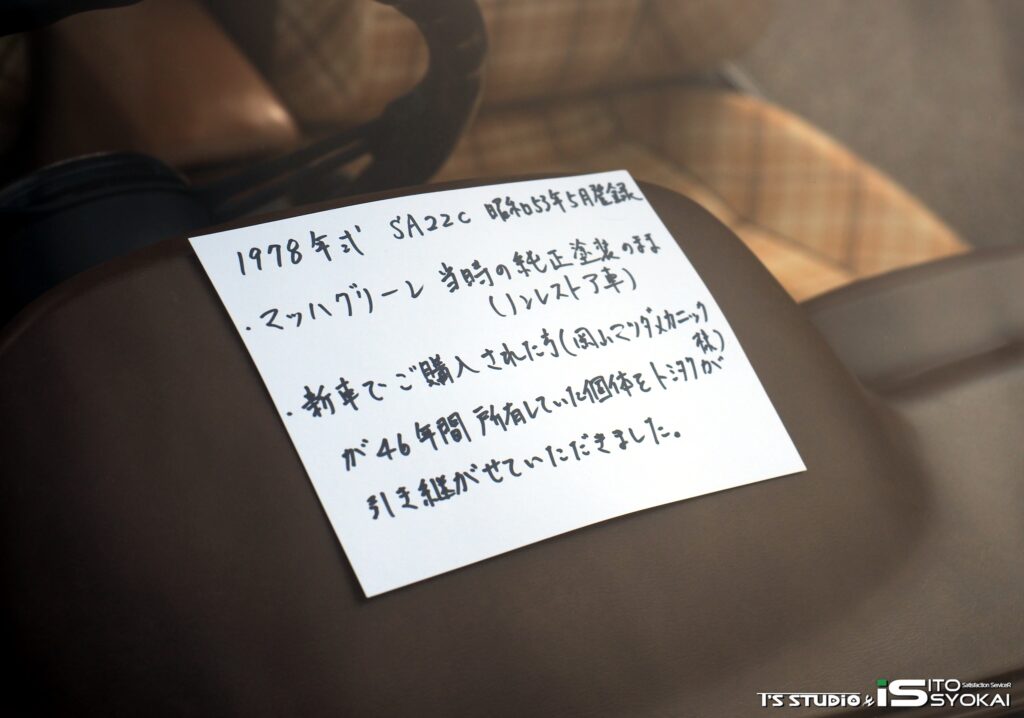 1978年式 SA22C 昭和53年5月登録
・マッハグリーン 当時の純正塗装のまま
(ノンレストア車)
・新車でご購入された方(岡山マツダメカニック
様)
が46年間所有していた個体をトミタクが
引き継がせていただきました。
T'S STUDIO & iS ITO SYOKAI
Satisfaction ServiceR